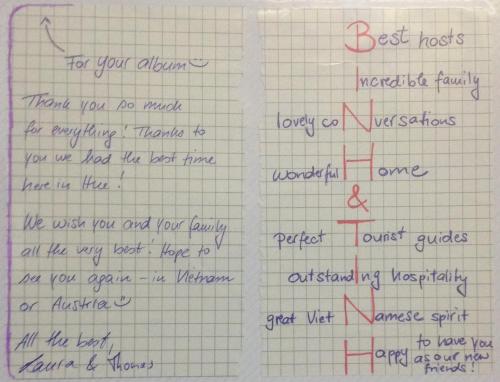 For your album
Thank you so much
for everything! Thanks to
you we had the best time
here in Hue!
We wish you and your family
all the very best! Hope to
see you again - in Vietnam
or Austria
All the best,
Laura & Thomas
Best hosts
Incredible family
lovely coNversations
wonderful Home
&
perfect Tourist guides
outstandIng hospitality
great Viet Namese spirit
Happy to have you
as our new
friends!